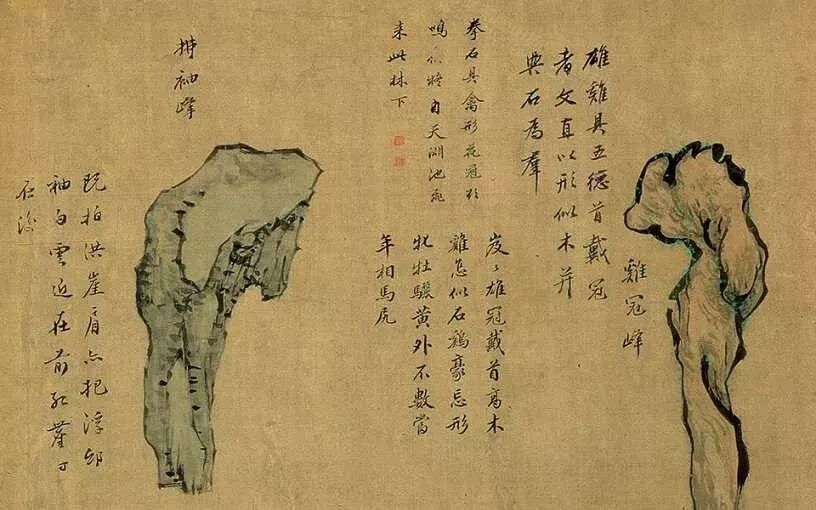 雞冠峰
雄雞具五德首戴冠
者文直以形似木并
石為羣
拳石具禽形花冠
鳴將自天池飛
來此林下
岌々雄冠戴首高木
雞怎似石豪忘形
牝牡驪黃外不數當
年相馬
袖峰
既拍洪崖肩亦把浮邱
袖白雲近在前崖丁
在後